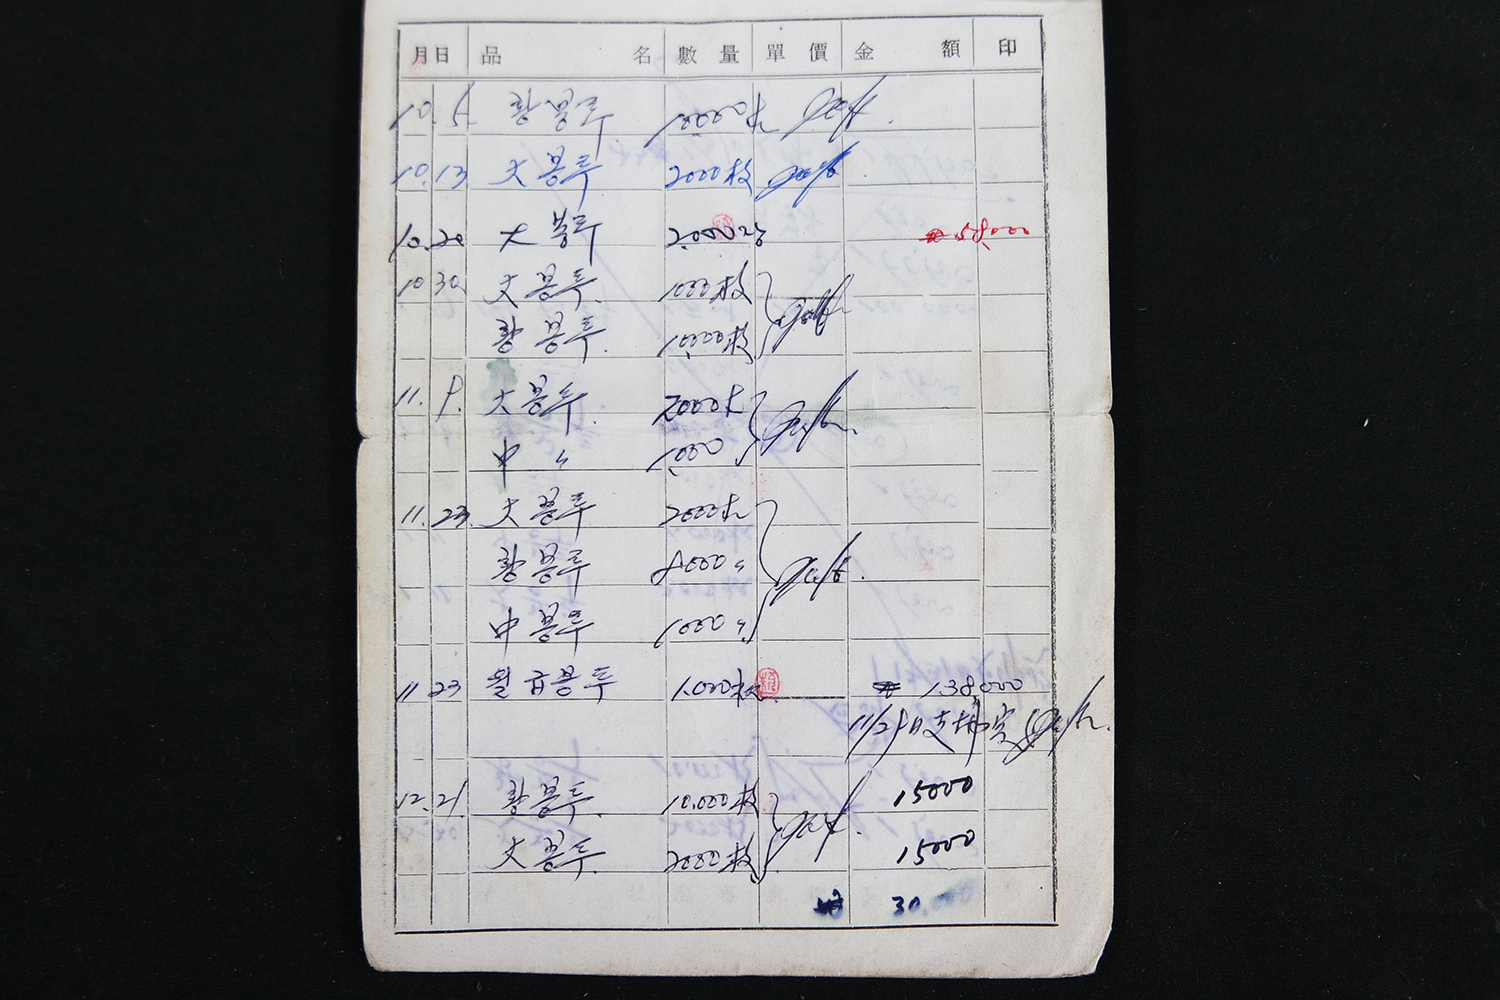 月 日 品 名 數 量 單 價 金 額 印
10. 5 황봉투. 10000
10. 13 大 봉투 2000枚
10. 20 大 봉투 2,000장 58,000
10 30. 大 봉투. 1000枚
황 봉투. 10,000枚
11. 9. 大 봉투. 2000
中 〃 1,000
11. 23. 大 봉투 2000
황 봉투 8000 〃
中 봉투 1000 〃
11 23 월급봉투 1,000枚 138,000
12. 21. 황봉투. 10,000枚 15000
大 봉투. 2000枚 15000
30,000